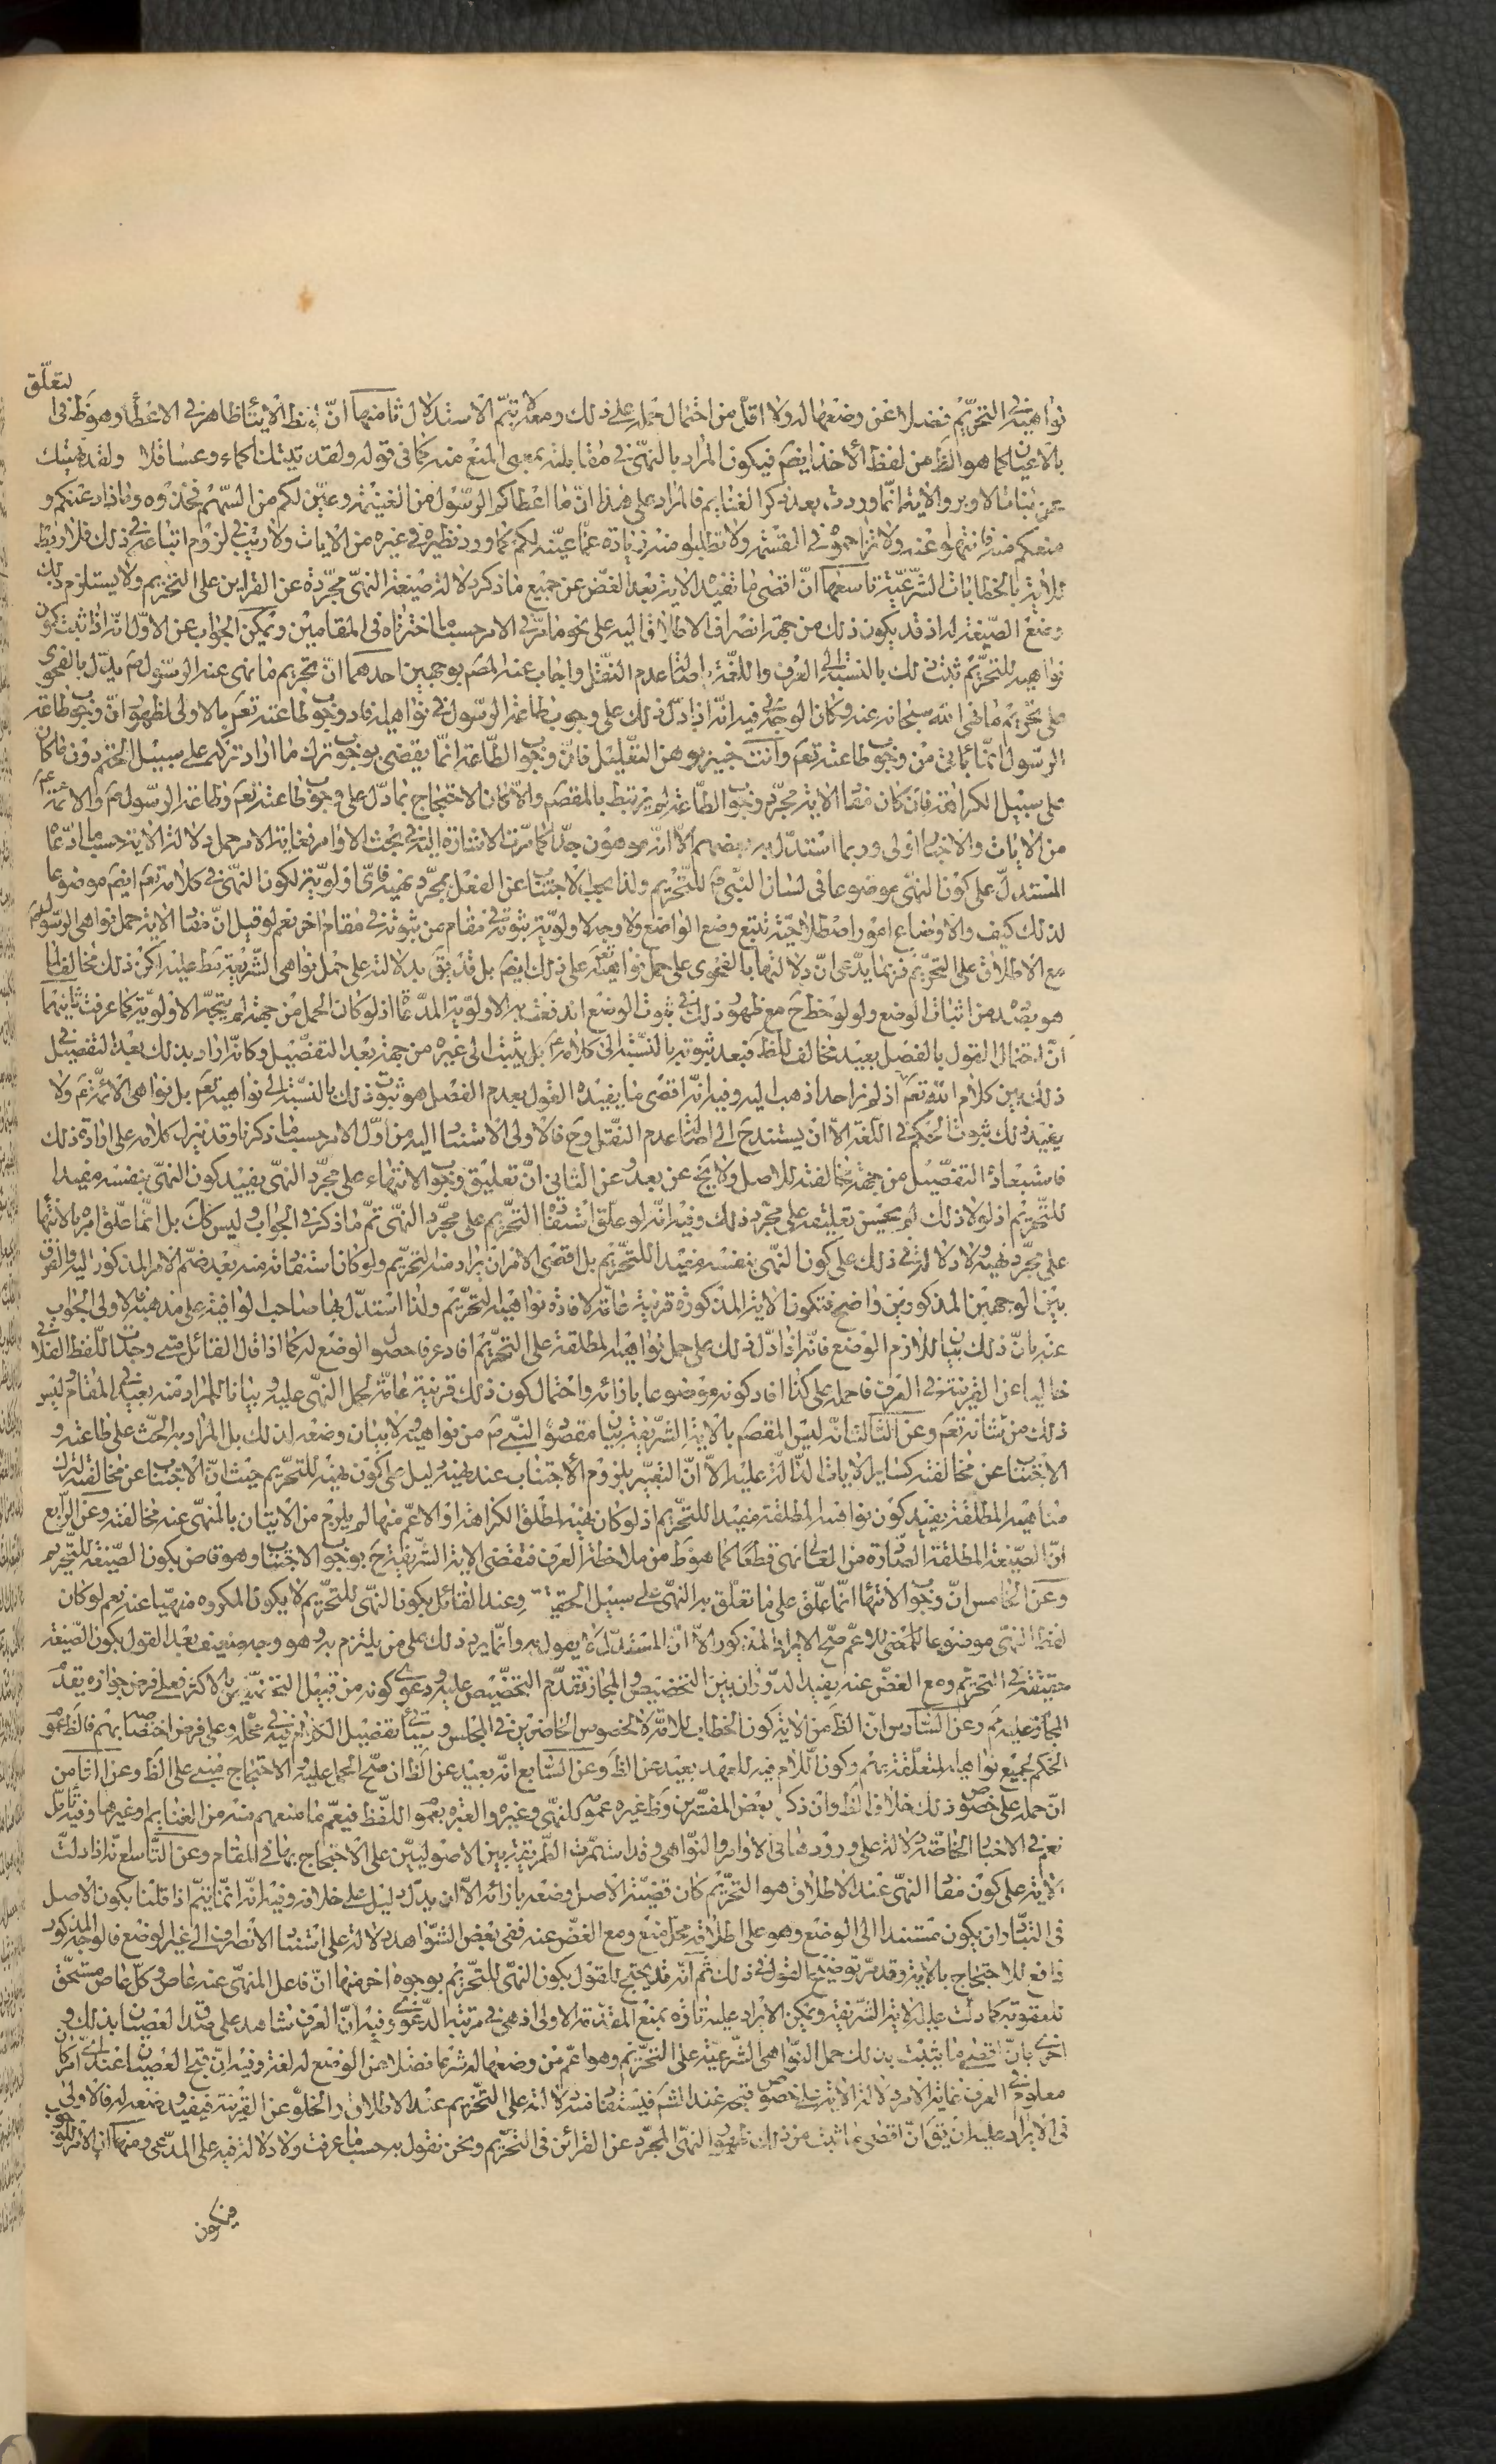 لتعلّق
نواهيه في التحريم فضلا عن وضعها له ولا اقل من احتمال حمله على ذلك ومعه لا يتم الاستدلال ثامنها انّ لفظ الايتاء ظاهر في الاعطاء وهو ظ في
بالاعيان كما هو الظ من لفظ الأخذ ايضم فيكون المراد بالنهى في مقابلته بمعنى المنع منه كما في قوله ولقد نهيتك
عن بنات الاوبر والاية انما وردت بعد ذكر الغنايم فالمراد على هذا انّ ما اعطاكم الرسول من الغنيمة وعيّن لكم من السّهم فخذوه وما ذادعنكم و
منعكم منه فانتهوا عنه ولا تزاحموه في القسمة ولا تطلبوا منه زيادة عمّا عيّنه لكم كما ورد نظيره في غيره من الايات ولا ريب في لزوم اتباعه في ذلك فلا ربط
للاية بالخطابات الشرعيّة تاسعها انّ اقضى ما تفيده الاية بعد الغضّ عن جميع ما ذكر دلالة صيغة النهى مجرّدة عن القراين على التحريم ولا يستلزم ذلك
وضع الصّيغة له اذ قد يكون ذلك من جهة انصراف الاطلاق اليه على نحو ما مرّ في الامر حسبما اخترناه في المقامين ويمكن الجواب عن الاوّل انّه اذا ثبت كون
نواهيه للتحريم ثبت ذلك بالنسبة الى العرف واللغة باصالة عدم النقل واجاب عنه المصم بوجهين احدهما انّ تحريم ما نهى عنه الرسول ص يدلّ بالفحوى
على تحريم ما نهى الله سبحانه عنه وكان الوجه فيه انّه اذا دلّ ذلك على وجوب طاعة الرّسول في نواهيه افاد وجوب طاعته تعم بالاولى لظهور انّ وجوب طاعة
الرّسول انّما يأتي من وجوب طاعته تعم وانت خبير بوهن التّعليل فانّ وجوب الطّاعة انّما يقضى بوجوب ترك ما اراد تركه على سبيل الحتم دون ما كان
على سبيل الكراهة فان كان مفاد الاية مجرّد وجوب الطّاعة لم يرتبط بالمقصم والاّ لكان الاحتجاج بما دلّ على وجوب طاعته تعم وطاعة الرسول ص والائمة ع
من الايات والاخبار اولى وربما استدلّ به بعضهم الاّ انّه موهون جدّا كما مرّت الاشارة اليه في بحث الاوامر فغاية الامر حمل دلالة الاية حسبما ادّعاه
المستدلّ على كون النهى موضوعا في لسان النّبي ص للتّحريم ولذا يجب الاجتناب عن الفعل بمجرّد نهيه فاىّ اولويّة لكون النهى في كلامه تعم ايضم موضوعا
لذلك كيف والاوضاع امور اصطلاحيّة تتبع وضع الواضع ولا وجه لاولويّة ثبوته في مقام من ثبوته في مقام اخر نعم لو قيل انّ مفاد الاية حمل نواهى الرسول ص
مع الاطلاق على التحريم فربما يدّعى انّ دلالتها بالفحوى على حمل نواهيه تعم على ذلك ايضم بل قد يقم بدلالته على حمل نواهى الشّريعة مط عليه لكن ذلك مخالف لما
هو بصدده من اثبات الوضع ولو لوحظ ح مع ظهور ذلك في ثبوت الوضع اندفعت به الاولويّة المدّعاة اذ لو كان الحمل من جهته لم يتّجه الاولويّة كما عرفت ثانيهما
انّ احتمال القول بالفصل بعيد مخالف للظ فبعد ثبوته بالنّسبة الى كلامه ص بل يثبت الى غيره من جهة بعد التفصيل وكانّه اراد بذلك بعد التفصيل في
ذلك بين كلام الله تعم اذ لم نر احدا ذهب اليه وفيه انّه اقضى ما يفيده القول بعدم الفصل هو ثبوت ذلك بالنّسبة الى نواهيه تعم بل نواهى الائمّة ع ولا
يفيد ذلك ثبوت الحكم في اللغة الاّ ان يستند ح الى اصالة عدم النقل وح فالاولى الاستناد اليه من اوّل الامر حسبما ذكرنا وقد ينزل كلامه على ارادة ذلك
فاستبعاد التفصيل من جهة مخالفته للاصل ولا يخ عن بعد وعن الثانى انّ تعليق وجوب الانتهاء على مجرّد النهى يفيد كون النهى بنفسه مفيدا
للتّحريم اذ لولا ذلك لم يحسن تعليقه على مجرّد ذلك وفيه انّه لو علّق استفادة التحريم على مجرّد النهى تمّ ما ذكر في الجواب وليس كك بل انّما علّق امره بالانتهاء
على مجرّد نهيه ولا دلالة في ذلك على كون النهى بنفسه مفيدا للتّحريم بل اقضى الامر ان يراد منه التحريم ولو كان استفادته منه بعد ضمّ الامر المذكور اليه والفرق
بين الوجهين المذكورين واضح فتكون الاية المذكورة قرينة عامّة لافادة نواهيه التحريم ولذا استدلّ بها صاحب الوافية على مذهبه فالاولى الجواب
عنه بانّ ذلك بيان للازم الوضع فانّه اذا دلّ ذلك على حمل نواهيه المطلقة على التحريم افاد عرفا حصول الوضع له كما اذا قال القائل متى وجدت اللفظ الفلانى
خاليا عن القرينة في العرف فاحمله على كذا افاد كونه موضوعا بازائه واحتمال كون ذلك قرينة عامّة لحمل النهى عليه وبيانا للمراد منه بعيد في المقام وليس
ذلك من شانه تعم وعن الثّالث انّه ليس المقصم بالاية الشّريفة بيان مقصود النّبي ص من نواهيه ولا بيان وضعه لذلك بل المراد به الحثّ على طاعته و
الاجتناب عن مخالفته كساير الايات الدّالّة عليه الاّ انّ التعبير بلزوم الأجتناب عند نهيه دليل على كون نهيه للتحريم حيث انّ الاجتناب عن مخالفته لترك
مناهيه المطلقة يفيد كون نواهيه المطلقة مفيدا للتّحريم اذ لو كان نهيه لمطلق الكراهة او الاعمّ منها لم يلزم من الاتيان بالمنهى عنه مخالفته وعن الرّابع
انّ الصّيغة المطلقة الصّادرة من العالى نهى قطعا كما هو ظ من ملاحظة العرف فتقضى الاية الشّريفة ح بوجوب الاجتناب وهو قاض بكون الصّيغة للتّحريم
وعن الخامس انّ وجوب الانتهاء انّما علّق على ما تعلّق به النهى على سبيل الحقيقة وعند القائل بكون النّهى للتّحريم لا يكون المكروه منهيّا عنه نعم لو كان
لفظ النهى موضوعا للمعنى الاعمّ صحّ الايراد المذكور الاّ انّ المستدلّ لا يقول به وانّما يرد ذلك على من يلتزم به وهو وجه ضعيف بعد القول بكون الصّيغة
حقيقة في التحريم ومع الغضّ عنه يفيد الدّوران بين التخصيص والمجاز تقدّم التخصيص عليه ودعوى كونه من قبيل التخصيص بالاكثر فعلى فرض جوازه يقدّم
المجاز عليه مم وعن السّادس انّ الظ من الاية كون الخطاب للامّة لا لخصوص الحاضرين في المجلس وسيأتى تفصيل الكلام فيه في محلّه وعلى فرض اختصاصه بهم فالظ عموم
الحكم لجميع نواهيه المتعلّقة بهم وكون اللّام فيه للعهد بعيد عن الظ وعن السّابع انّه بعيد عن الظ ان صحّ الحمل عليه والاحتجاج مبنى على الظ وعن الثّامن
انّ حمله على خصوص ذلك خلاف الظ وان ذكر بعض المفسّرين وظ غيره عموم كلّ نهى وغيره والعبرة بعموم اللّفظ فيعمّ ما منعهم منه من الغنايم وغيرها وفيه تأمّل
نعم في الاخبار الخاصّة دلالة على ورودها في الاوامر والنّواهى وقد استمرّت الطّريقة بين الاصوليّين على الاحتجاج بها في المقام وعن التّاسع انّه اذا دلّت
الاية على كون مفاد النهى عند الاطلاق هو التحريم كان قضيّة الاصل وضعه بازائه الاّ ان يدلّ دليل على خلافه وفيه انّه انّما يتمّ اذا قلنا بكون الأصل
في التّبادر ان يكون مستندا الى الوضع وهو على اطلاقه محلّ منع ومع الغضّ عنه ففى بعض الشّواهد دلالة على استناد الانصراف الى غير الوضع فالوجه المذكور
دافع للاحتجاج بالاية وقد مرّ توضيح القول في ذلك ثمّ انّه قد يحتج للقول بكون النهى للتّحريم بوجوه اخر منها انّ فاعل المنهى عنه عاص وكلّ عاص مستحقّ
للعقوبة كما دلّت عليه الاية الشّريفة ويمكن الايراد عليه تارة بمنع المقدّمة الاولى اذ هى في مرتبة الدّعوى وفيه انّ العرف شاهد على صدق العصيان بذلك و
اخرى بانّ اقضى ما يثبت بذلك حمل النّواهى الشّرعيّة على التحريم وهو اعمّ من وضعها له شرعا فضلا عن الوضع له لغة وفيه انّ قبح العصيان عندنا امر كان
معلوم في العرف غاية الامر دلالة الاية على خصوص قبحه عند الشّم فيستفاد منه دلالته على التّحريم عند الاطلاق والخلوّ عن القرينة فيفيد وضعه له فالاولى
في الايراد عليه ان يقم انّ اقضى ما ثبت من ذلك ظهور النهى المجرّد عن القرائن في التحريم ونحن نقول به حسبما عرفت ولا دلالة فيه على المدّعى ومنها انّ الامر للوجوب
فيكون